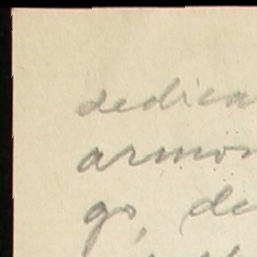 dedica
armon
go, de